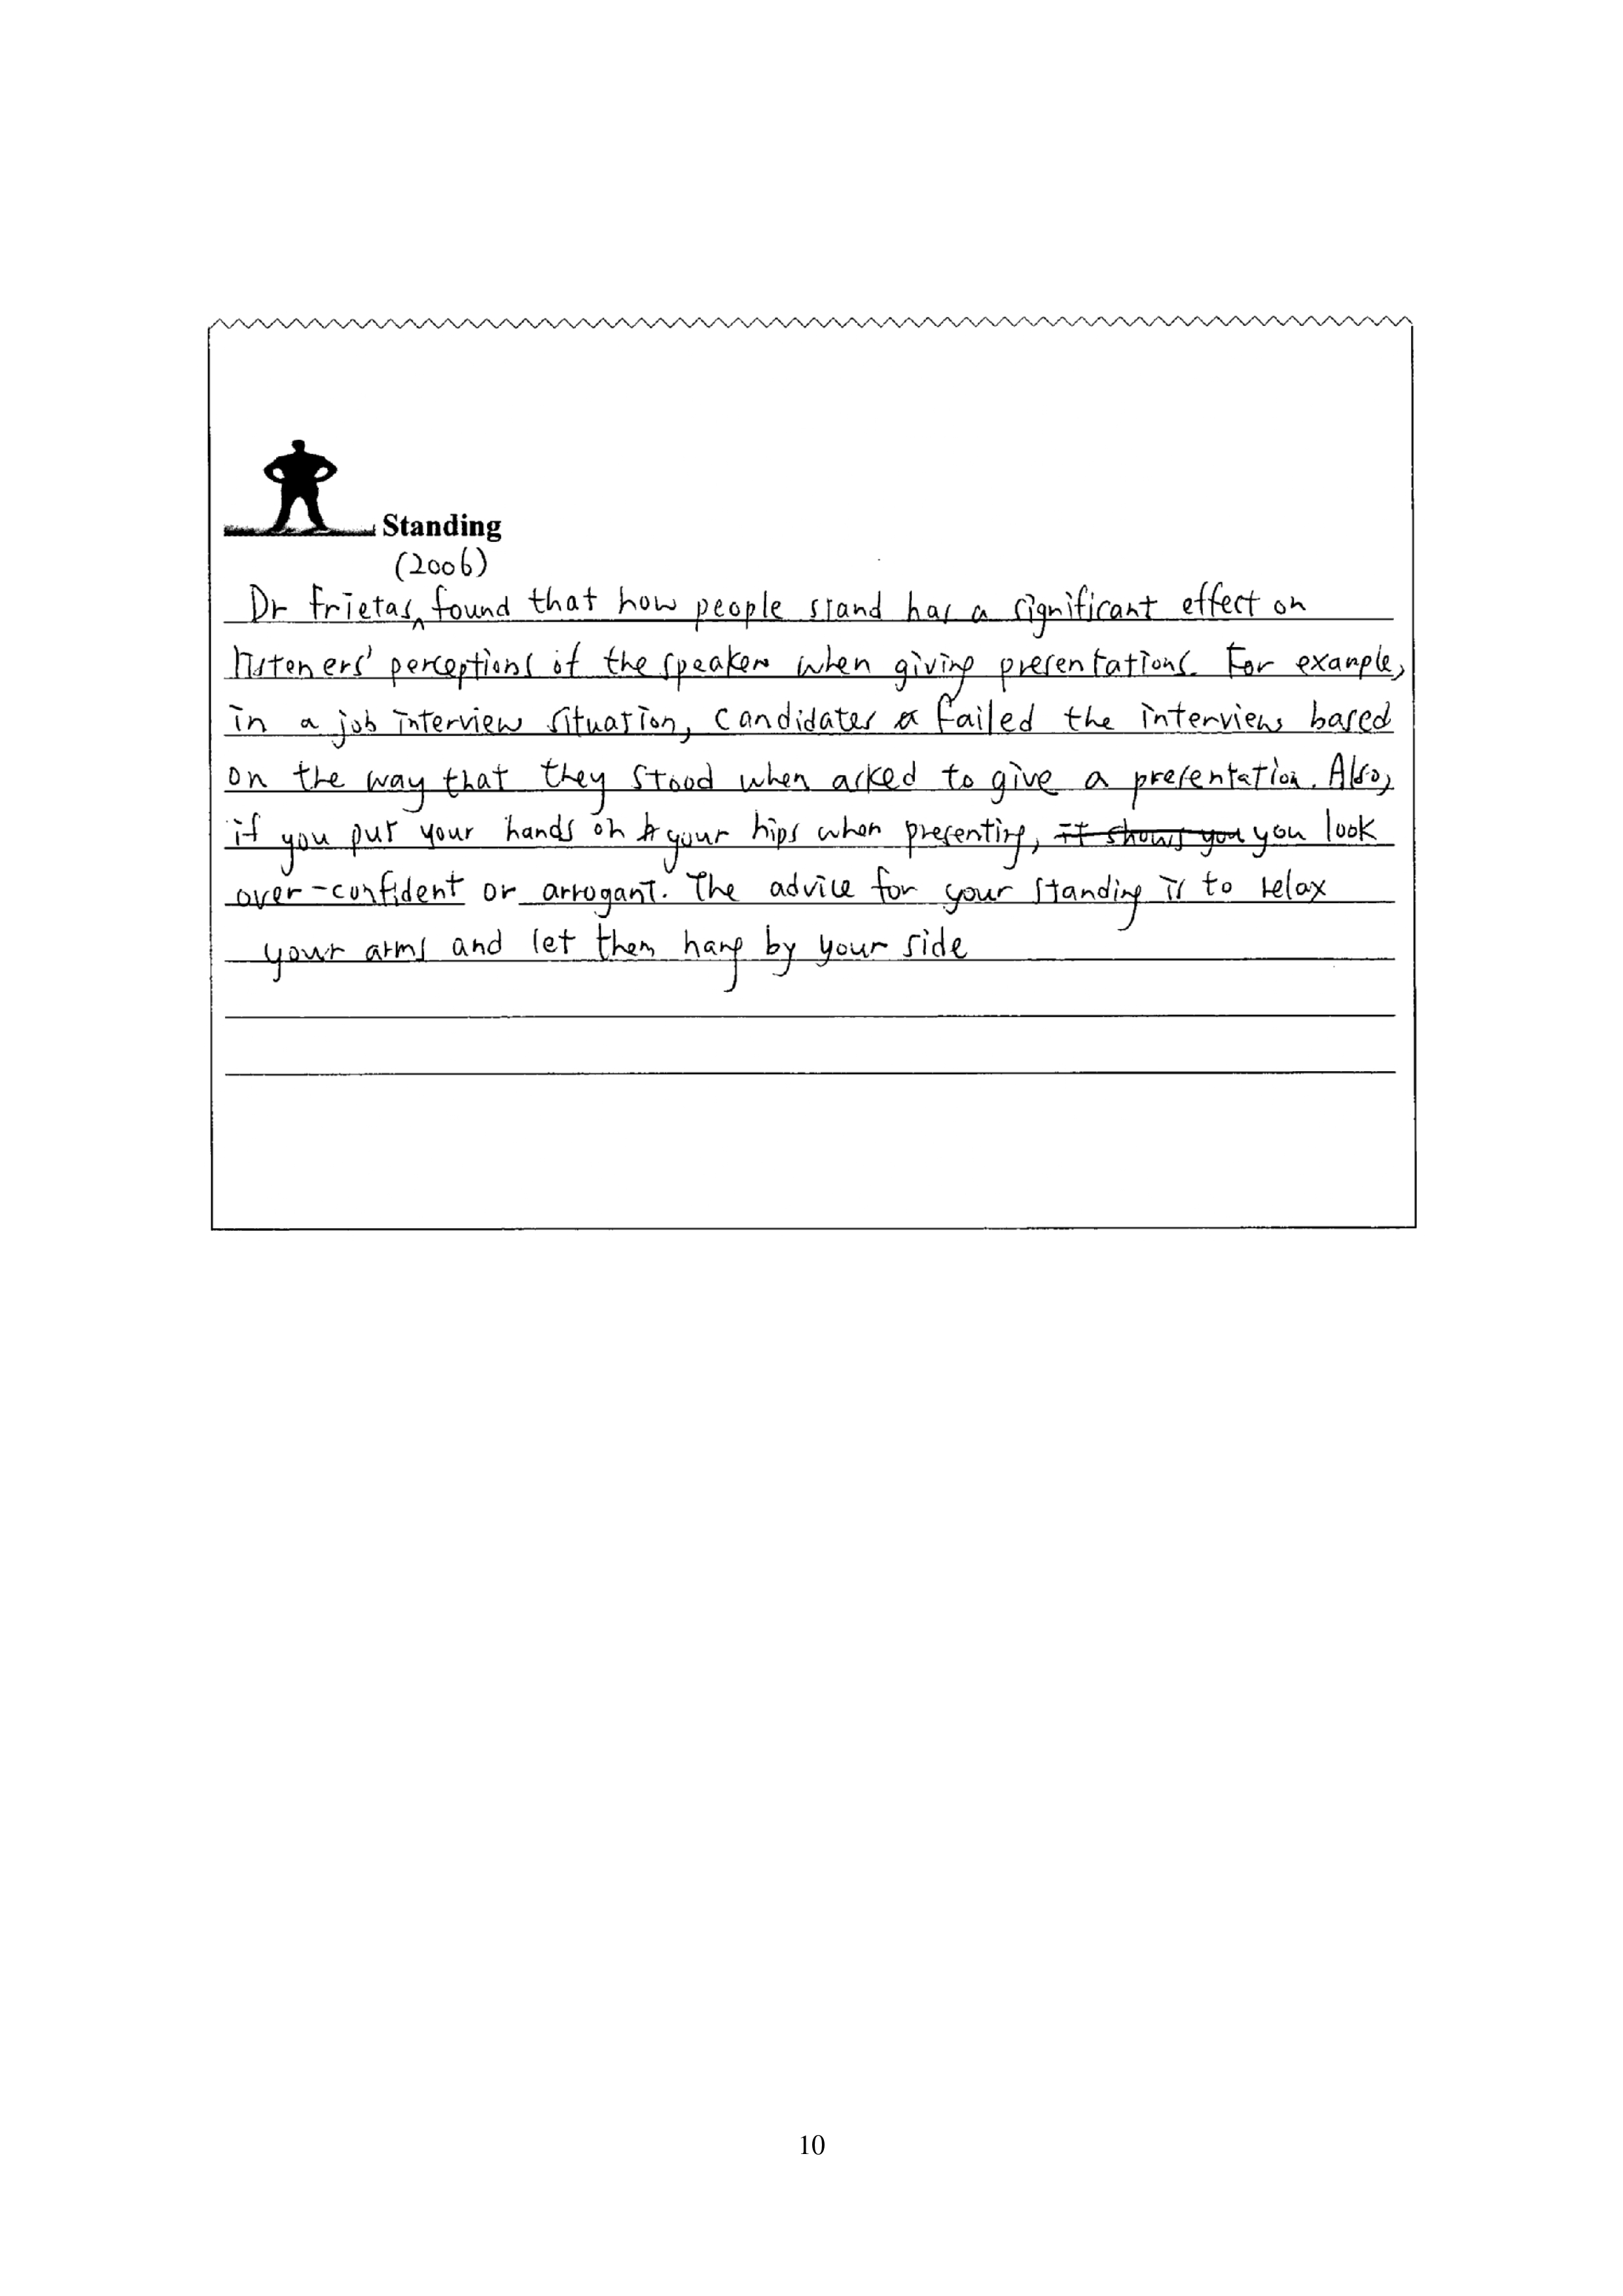 Standing
(2006)
Dr Frietas found that how people stand has a significant effect on
listeners' perceptions of the speaker when giving presentations. For example,
in a job interview situation, candidates failed the interviews based
on the way that they stood when asked to give a presentation. Also,
if you put your hands on your hips when presenting, it shows you you look
over-confident or arrogant. The advice for your standing is to relax
your arms and let them hang by your side
10